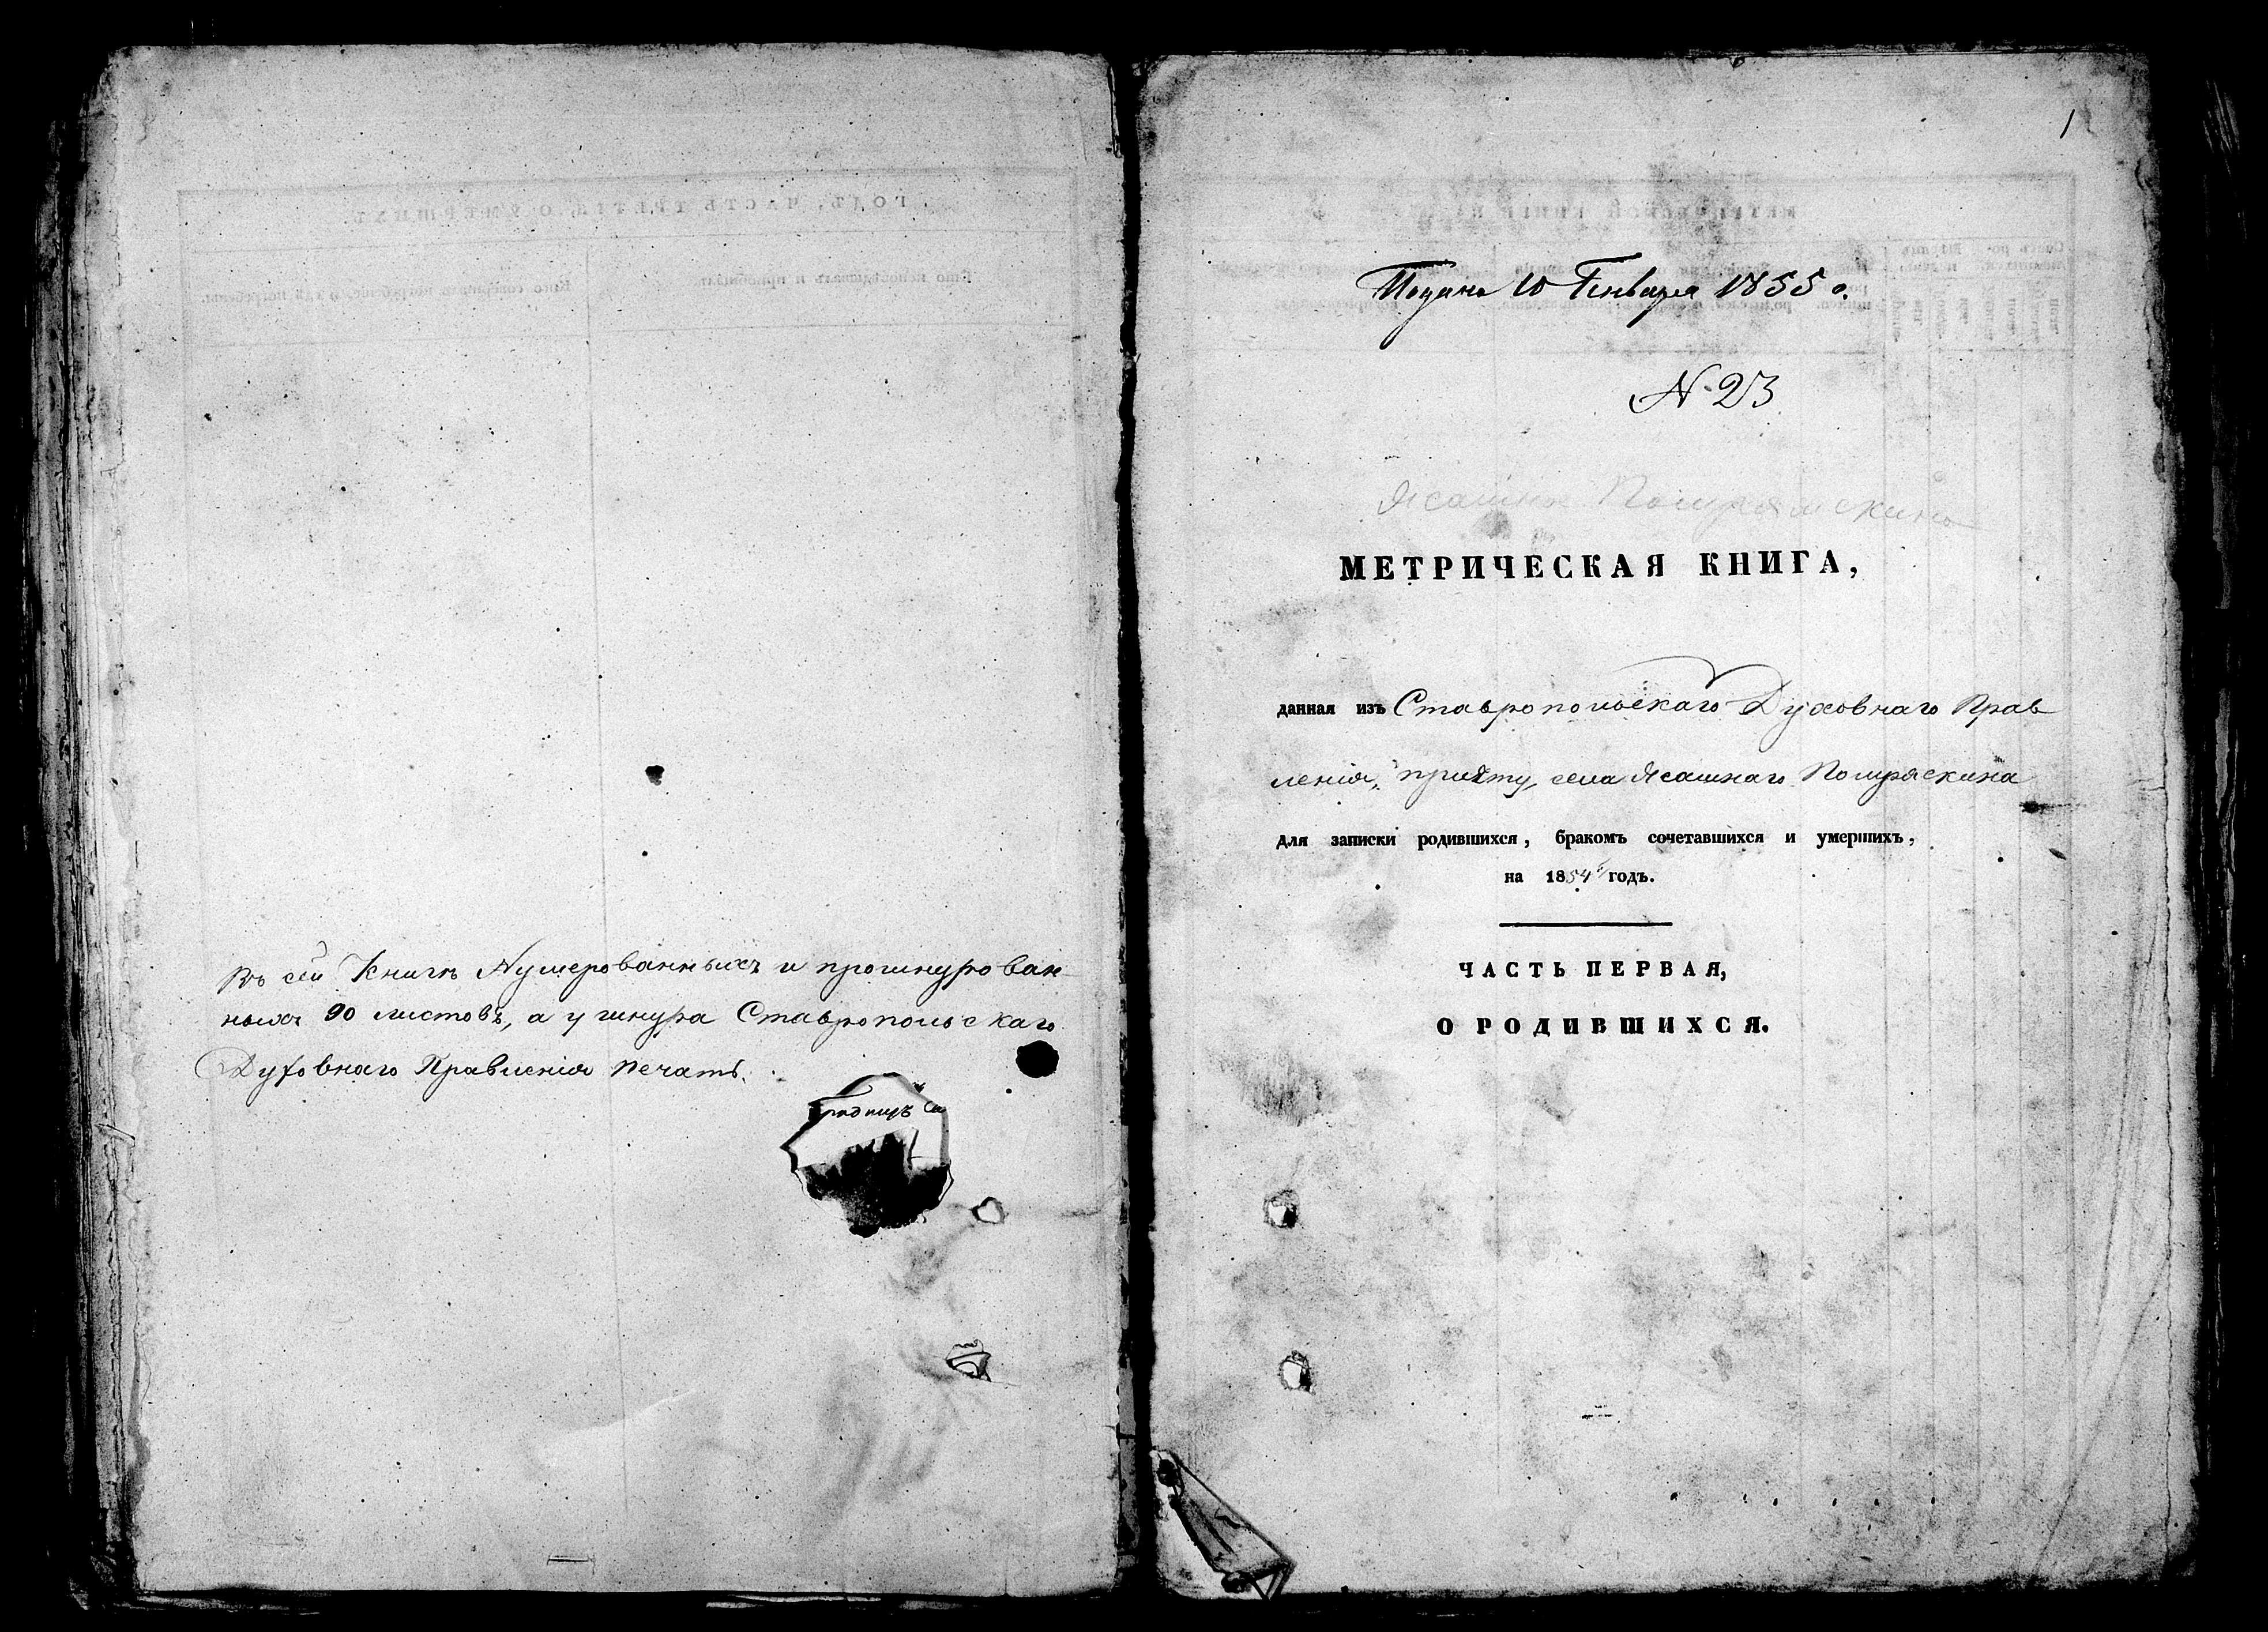 Въ сей Книгѣ Нумерованныхъ и прошнурован
ныхъ 90 листовъ, а у шнура Ставропольскаго
Духовнаго Правленія печать.
1
Подана 10 Генваря 1855 г.
N 23
Ясашное Помряскино
МЕТРИЧЕСКАЯ КНИГА,
данная изъ Ставропольскаго Духовнаго Прав
ленія, причту села Ясашнаго Помряскина
для записки родившихся, бракомъ сочетавшихся и умершихъ,
на 1854й годъ.
ЧАСТЬ ПЕРВАЯ,
О РОДИВШИХСЯ.